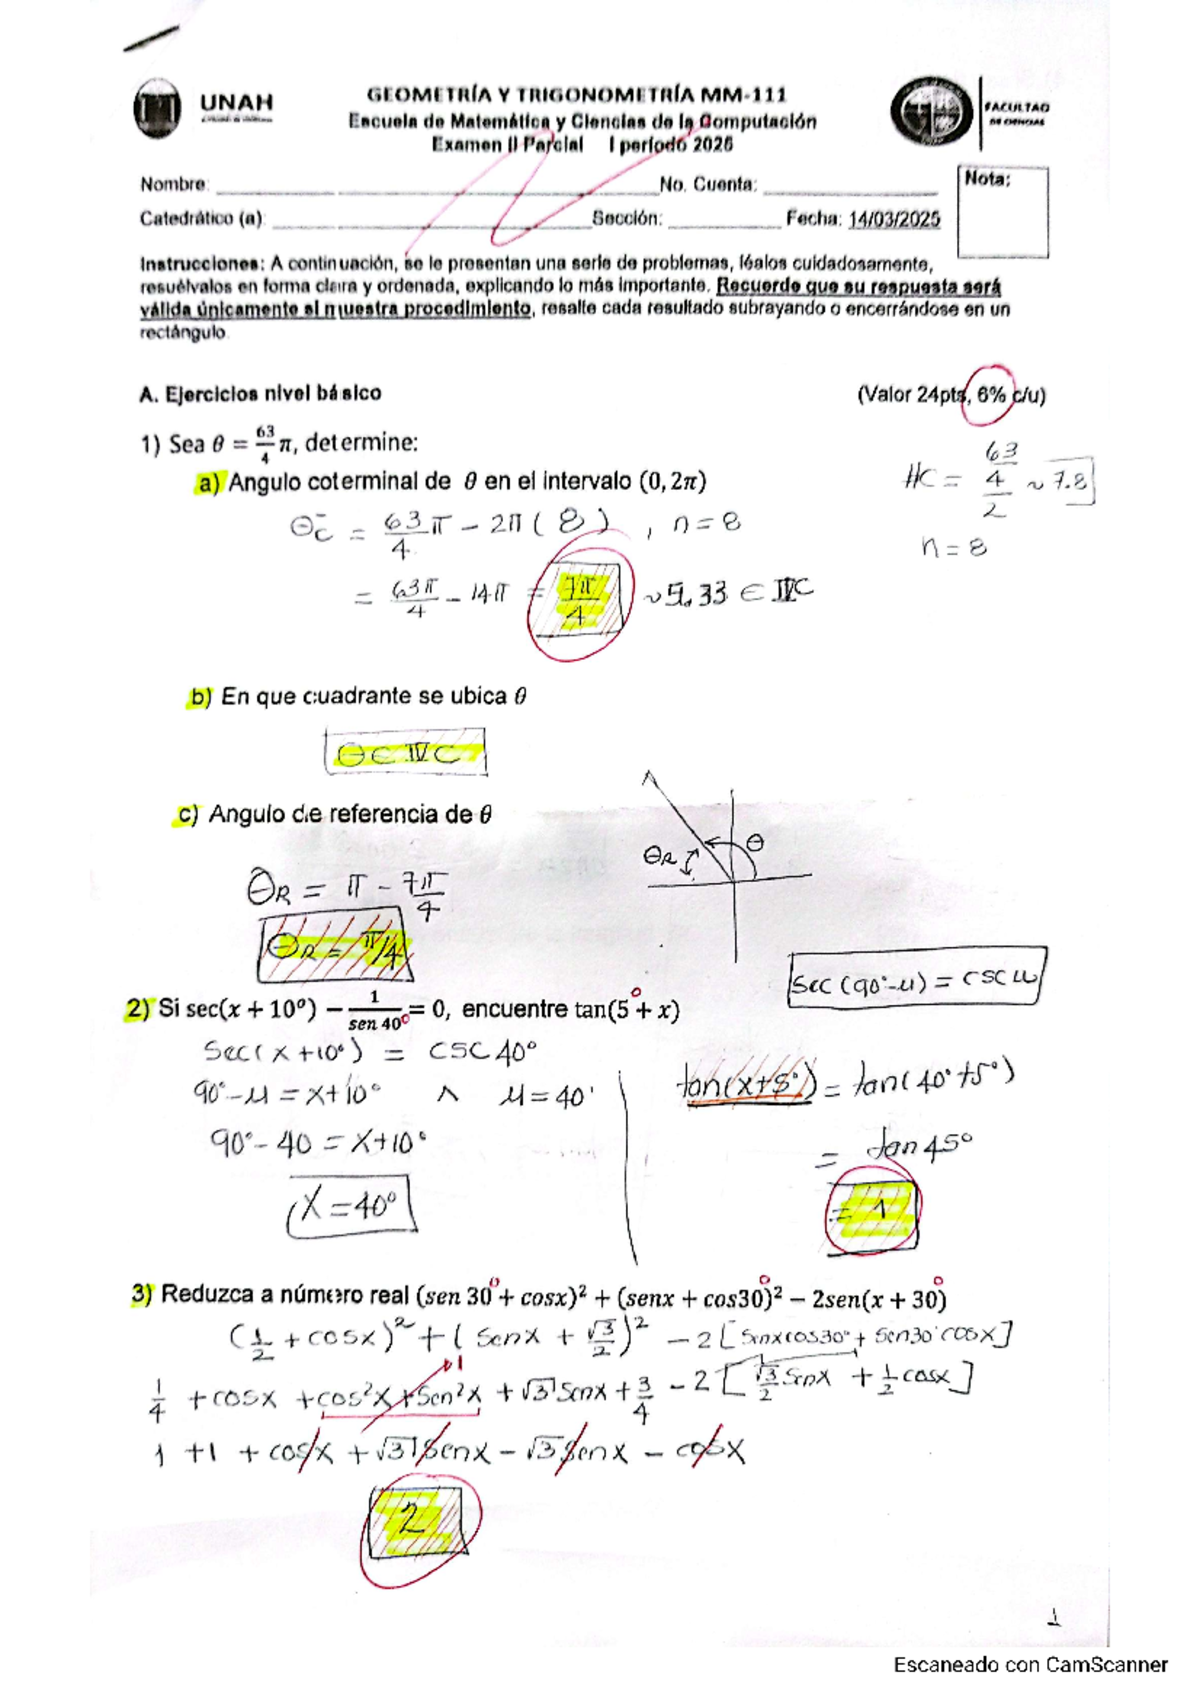 UNAH
GEOMETRÍA Y TRIGONOMETRÍA MM-111
Escuela de Matemática y Ciencias de la Computación
Examen II Parcial I periodo 2025
FACULTAD
DE CIENCIAS
Nombre: ____ No. Cuenta: ____ Nota:
Catedrático (a): ____ Sección: ____ Fecha: 14/03/2025
Instrucciones: A continuación, se le presentan una serie de problemas, léalos cuidadosamente,
resuélvalos en forma clara y ordenada, explicando lo más importante. Recuerde que su respuesta será
válida únicamente si muestra procedimiento, resalte cada resultado subrayando o encerrándose en un
rectángulo.
A. Ejercicios nivel básico (Valor 24pts, 6% c/u)
1) Sea θ = 63/4 π, determine:
a) Angulo coterminal de θ en el intervalo (0, 2π)
#C = 63/4 / 2 ~ 7.8
n = 8
θc = 63π/4 - 2π(8), n = 8
= 63π/4 - 14π = 7π/4 ~ 5.33 ∈ IVC
b) En que cuadrante se ubica θ
θ ∈ IVC
c) Angulo de referencia de θ
θR θ
θR = π - 7π/4
θR = π/4
Sec(90°-u) = csc u
2) Si sec(x + 10º) − 1/sen 40° = 0, encuentre tan(5° + x)
Sec(x+10°) = csc 40°
90°-u = x+10° ∧ u = 40°
90°-40 = x+10°
x = 40°
tan(x+5°) = tan(40°+5°)
= tan 45°
= 1
3) Reduzca a número real (sen 30° + cosx)² + (senx + cos30°)² − 2sen(x + 30°)
(1/2 + cosx)² + (senx + √3/2)² - 2[senxcos30° + sen30°cosx]
1/4 + cosx + cos²x + sen²x + √3 senx + 3/4 - 2[√3/2 senx + 1/2 cosx]
1
1 + 1 + cosx + √3 senx - √3 senx - cosx
2
1
Escaneado con CamScanner